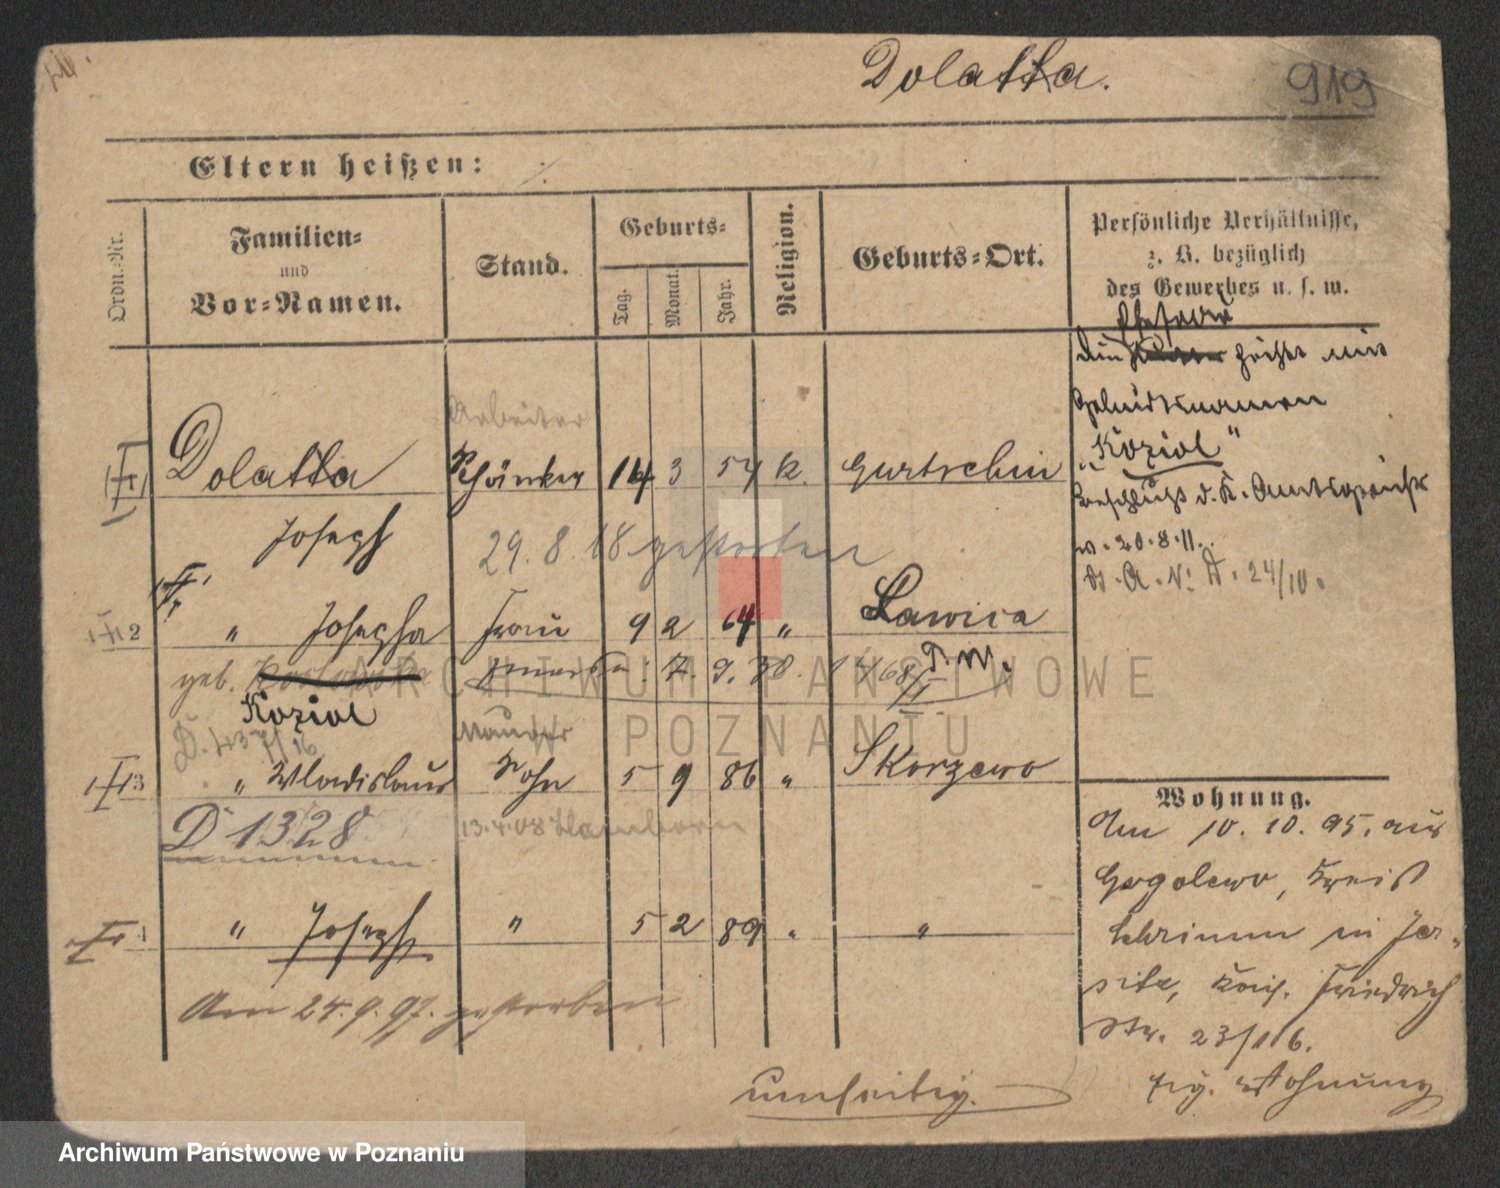 Dolatta.
919
Eltern heißen: ./.
Ordn.-Nr.
Familien=
und
Vor=Namen.
Stand.
Geburts=
Tag.
Monat.
Jahr.
Religion.
Geburts=Ort.
Persönliche Verhältnisse,
z. B. bezüglich
des Gewerbes u. s. w.
Ehefrau
Die heißt mit
Geburtsnamen
"Koziol"
Beschluß d. K. Amtsgerichts
v. 20.8.11.
24/10.
Arbeiter
Dolatta Schänker 14 3 54 k. Gurtschin
Joseph
29. 8. 18 gestorben
2 " Josepha Frau 9 2 64 " Lawica
geb.
7. 9. 30.
Koziol
D. 437/16
Maurer
3 " Wladislaus Sohn 5 9 86 " Skorzewo
D 1328
13.4.08 Hamborn
4 " Joseph " 5 2 89 " "
Am 24. 9. 97. gestorben
Wohnung.
Am 10. 10. 95. aus
Gogolewo, Kreis
Schrimm in Jer-
sitz, Kais. Friedrich
Str. 23/16.
frz. Wohnung
umseitig.
ARCHIWUM PAŃSTWOWE
W POZNANIU
Archiwum Państwowe w Poznaniu